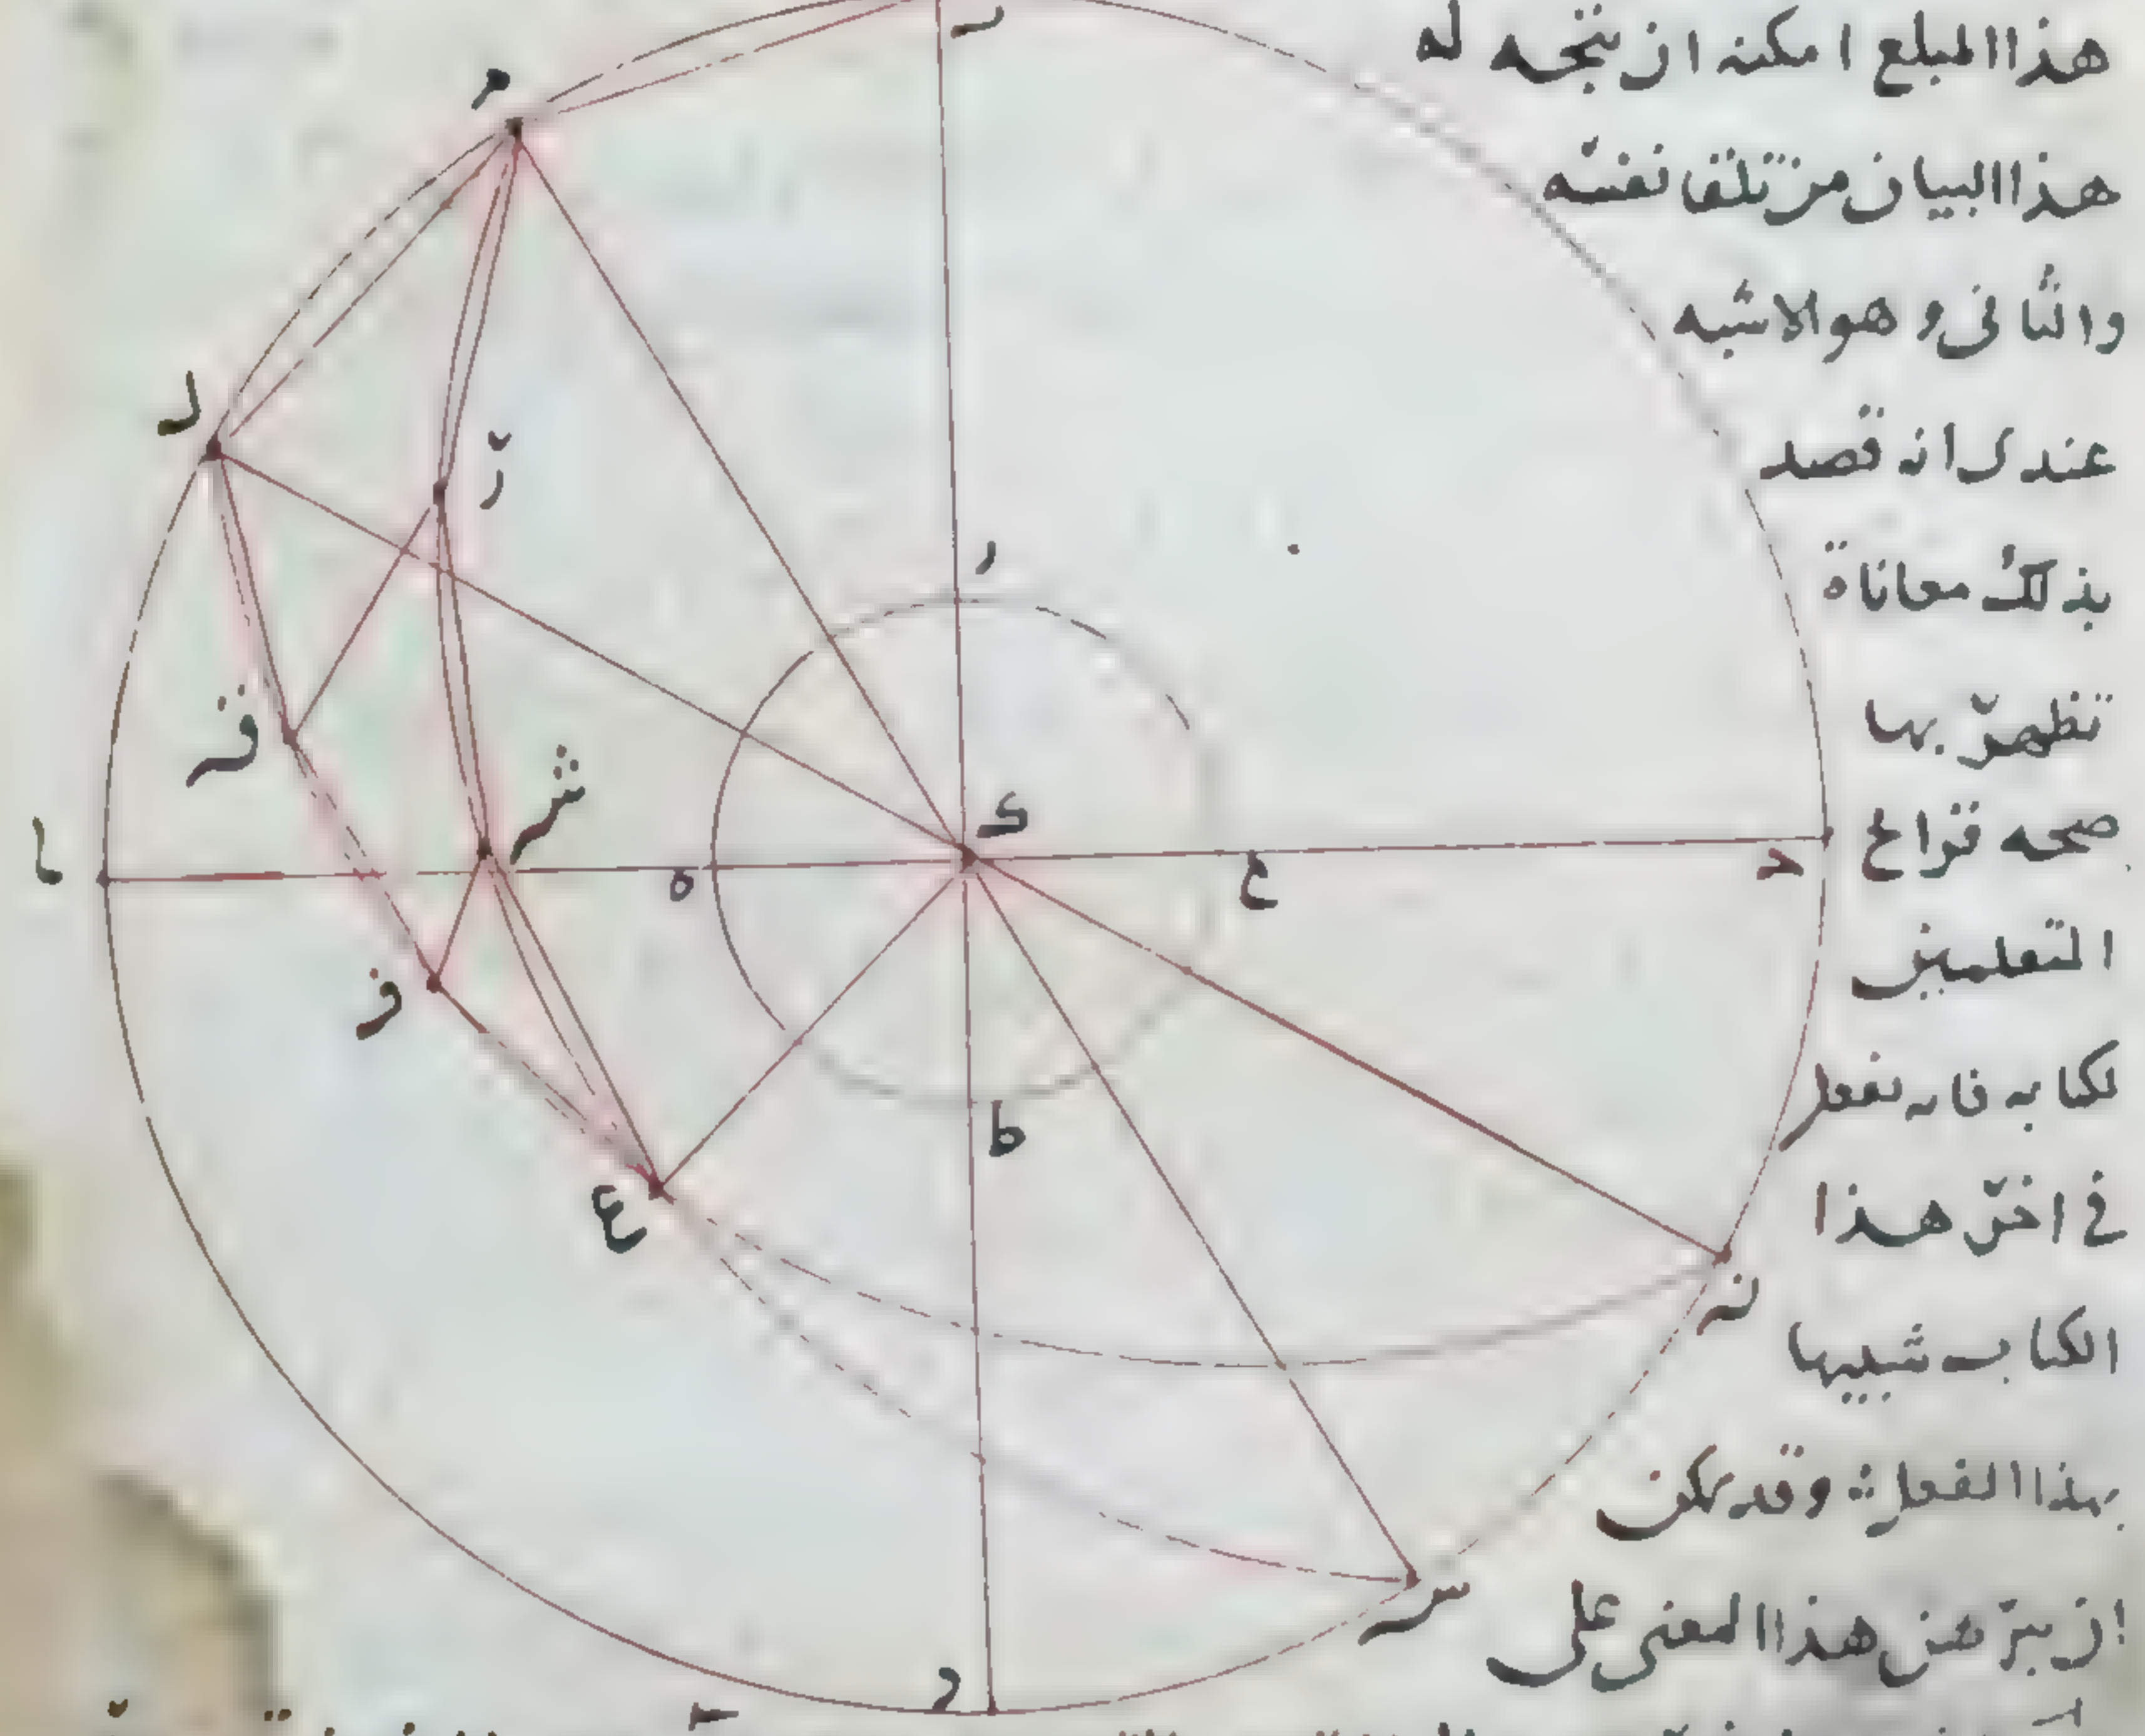 هذا المبلع امكنه ان يتجه له
هذا البيان من تلقا نفسه
والثانى وهو الاشبه
عندى انه قصد
بذلك معاناة
تظهر بها
صحه
المتعلمين
لكتابه فانه نفعل
فى اخر هذا
الكتاب شبيها
بهذا الفعل وقد يمكن
ان يبرهن هذا المعنى على
م
ل
ر
ر
ق
ش
ك
ا
ه
ح
ح
ف
ط
ع
ن
س
د